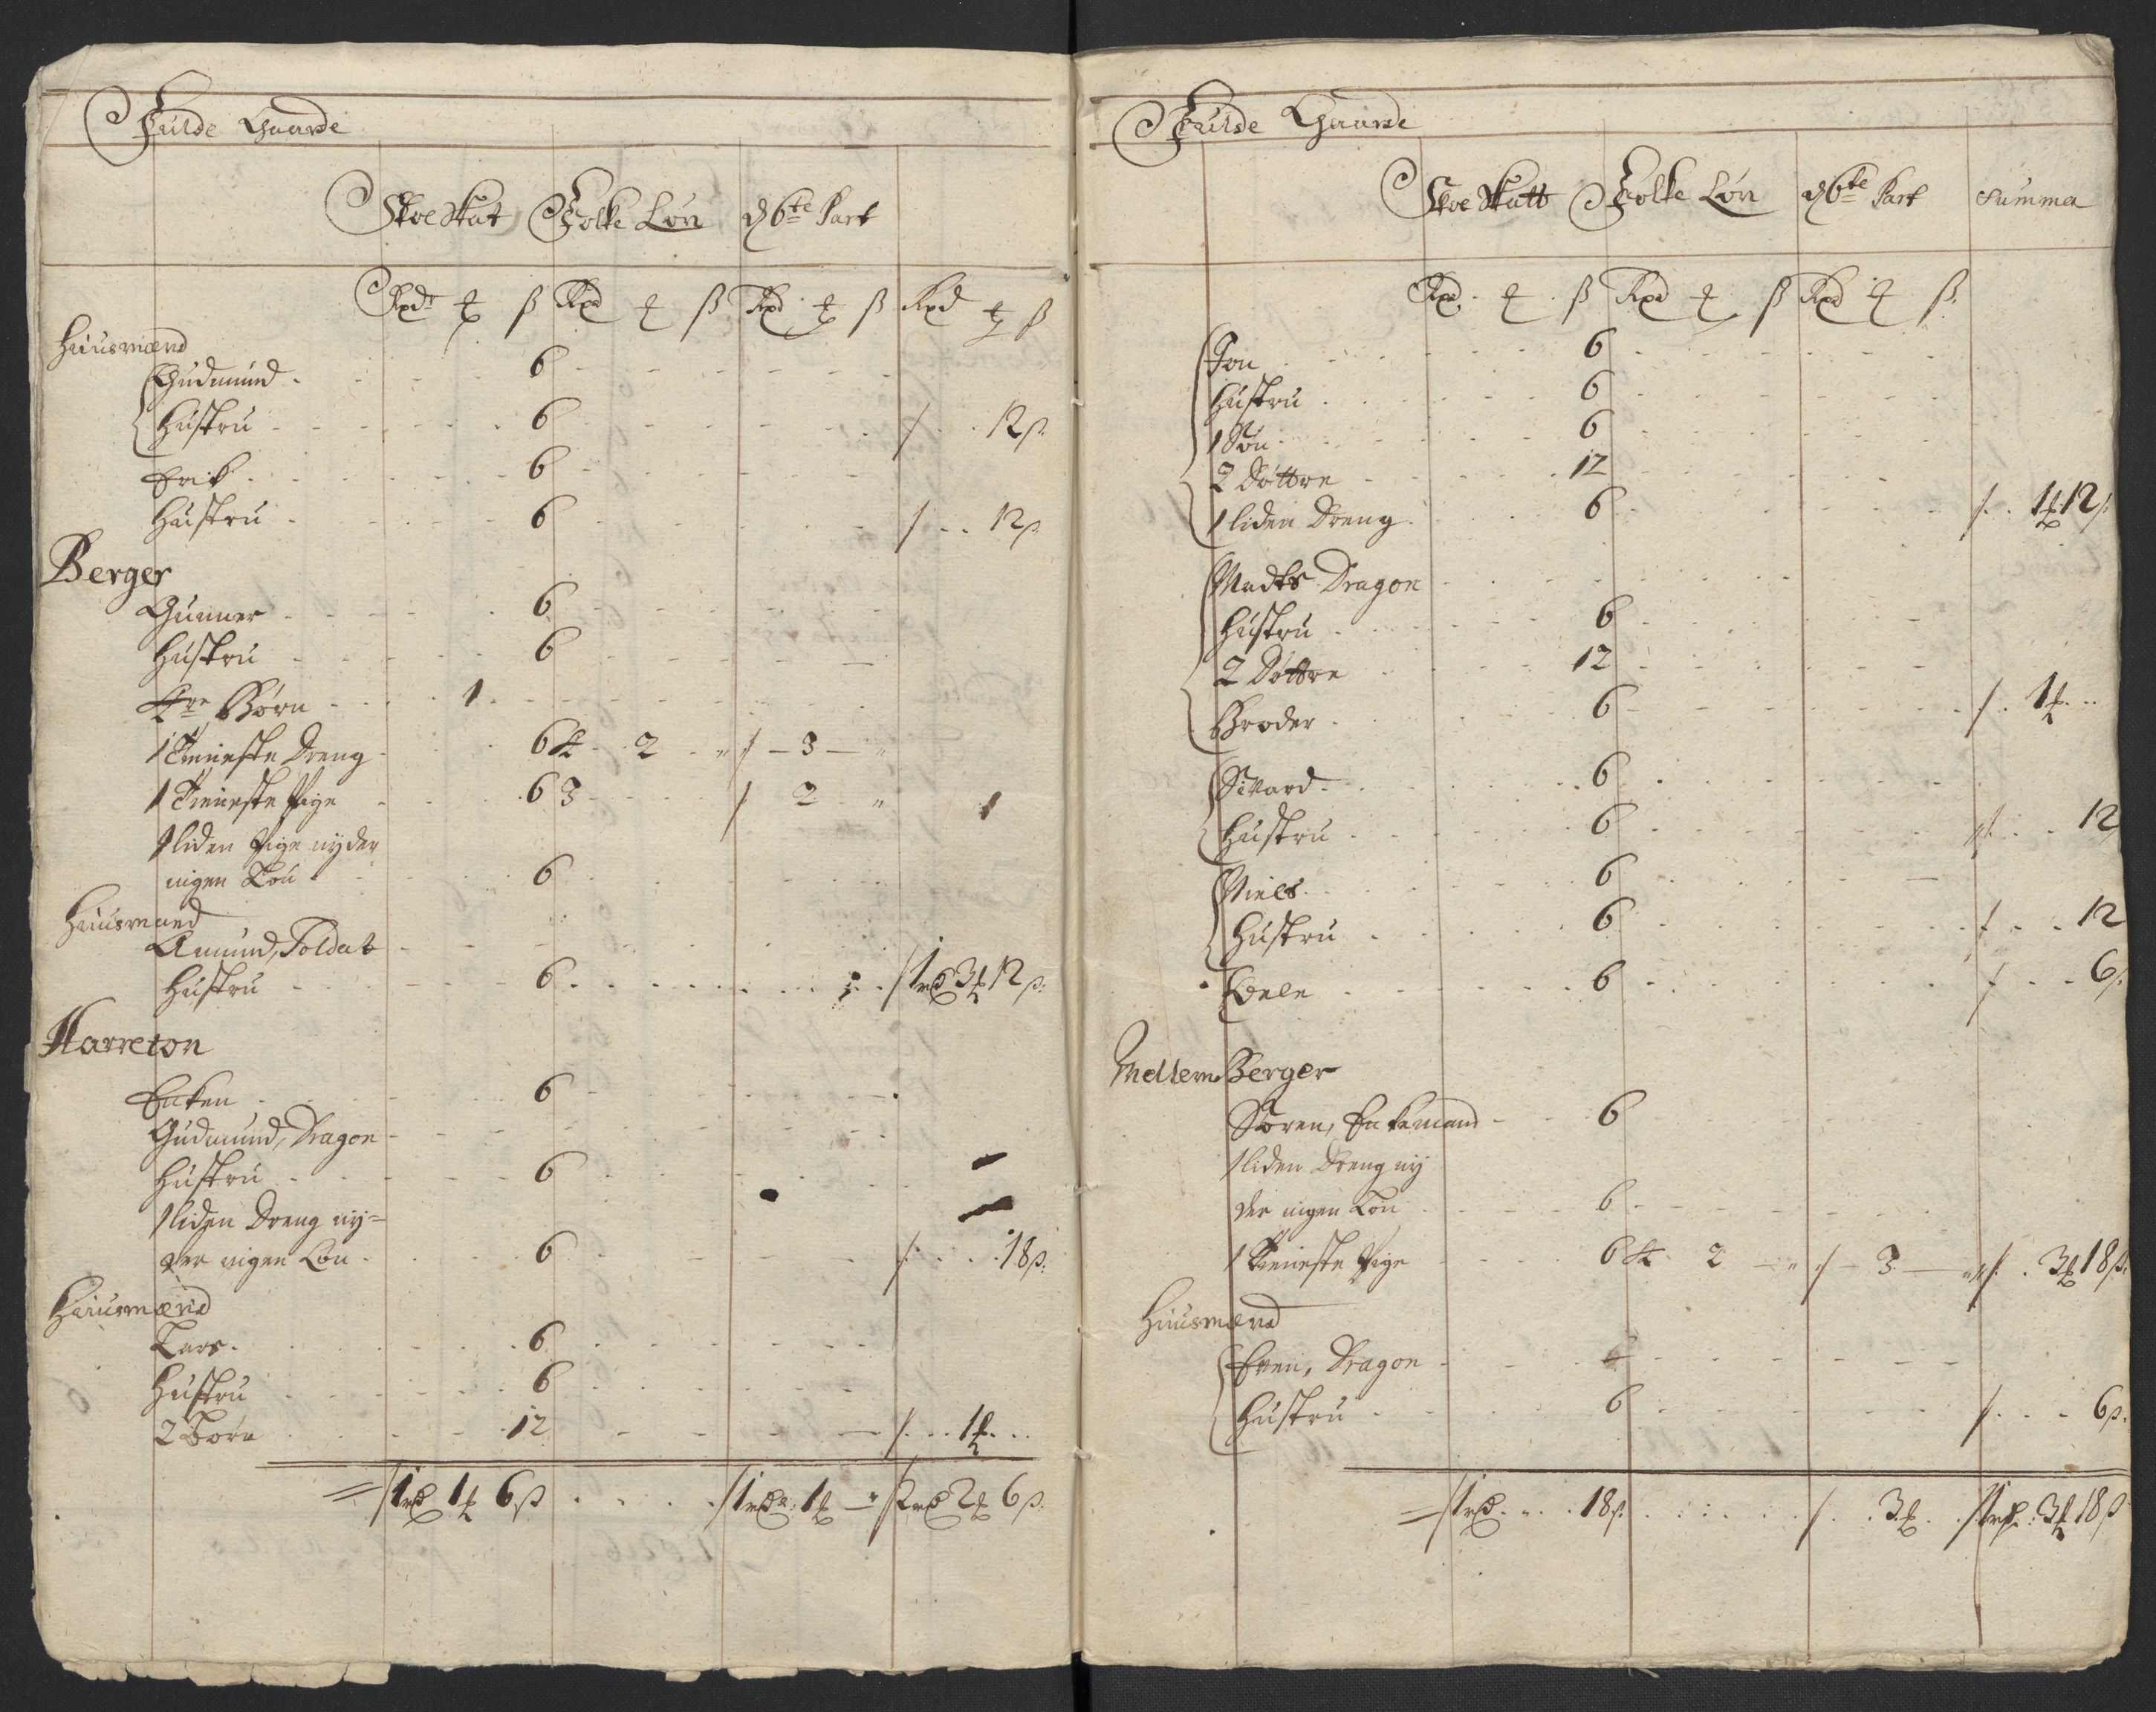 Fulde Gaarde
Skoe Skat Folke Løn d 6te Part
Rpdr ß Rpd ß Rpd ß Rpd ß
Huusmænd
Gudmund 6
Hustru 6 12 ß
Erik 6
Hustru 6 12 ß
Berger
Gunner 6
Hustru 6
Børn 1
1 Tieneste Dreng 6 2 3
1 Tieneste Pige 6 3 2 1
1 liden Pige nyder
ingen Løn 6
Huusmand
Amund, Soldat
Hustru 6 1 rd 3 12 ß
Harreton
Enken 6
Gudmund, Dragon
Hustru 6
1 liden Dreng ny=
der ingen Løn 6 18 ß
Huusmænd
Lars 6
Hustru 6
2 Børn 12 1
1 rd 1 6 ß 1 rdr 1 2 rd 2 6 ß
Fulde Gaarde
Skoe Skatt Folke Løn d 6te Part Summa
Rpd ß Rpd ß Rpd ß
Jon 6
Hustru 6
1 Søn 6
2 Døttre 12
1 liden Dreng 6 1 12 ß
Madts Dragon
Hustru 6
2 Døttre 12
Broder 6 1
Sivard 6
Hustru 6 12
Niels 6
Hustru 6 12
6 6 ß
Mellem Berger
Søren, Enkemand 6
1 liden Dreng ny
der ingen Løn 6
1 Tieneste Pige 6 2 3 3 18 ß
Huusmænd
Even, Dragon
Hustru 6 6 ß
1 rd 18 ß 3 1 rd 3 18 ß